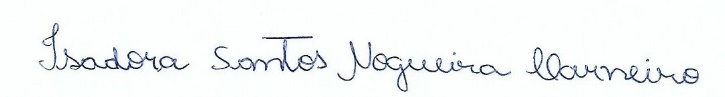 Isadora Santos Nogueira Carneiro